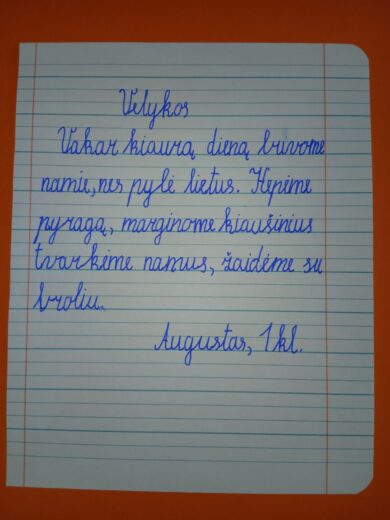 Velykos
Vakar kiaurą dieną buvome
namie, nes pylė lietus. Kepėme
pyragą, marginome kiaušinius
tvarkėme namus, žaidėme su
broliu.
Augustas, 1 kl.